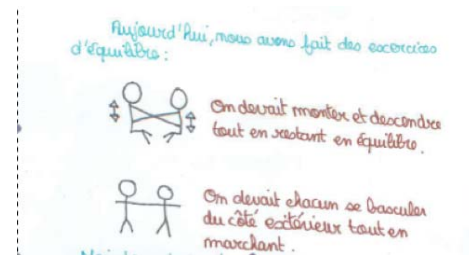 Aujourd'hui, nous avons fait des excercices
d'équilibre :
On devait monter et descendre
tout en restant en équilibre.
On devait chacun se basculer
du côté extérieur tout en
marchant.